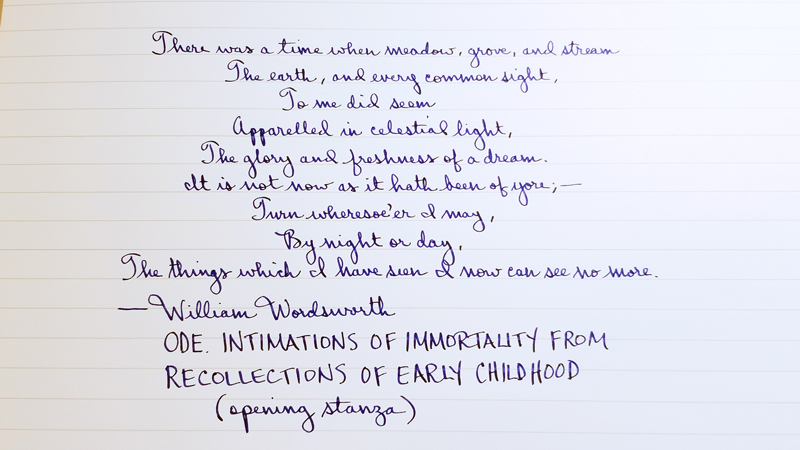 There was a time when meadow, grove, and stream
The earth, and every common sight,
To me did seem
Apparelled in celestial light,
The glory and freshness of a dream.
It is not now as it hath been of yore;—
Turn wheresoe'er I may,
By night or day,
The things which I have seen I now can see no more.
—William Wordsworth
ODE. INTIMATIONS OF IMMORTALITY FROM
RECOLLECTIONS OF EARLY CHILDHOOD
(opening stanza)